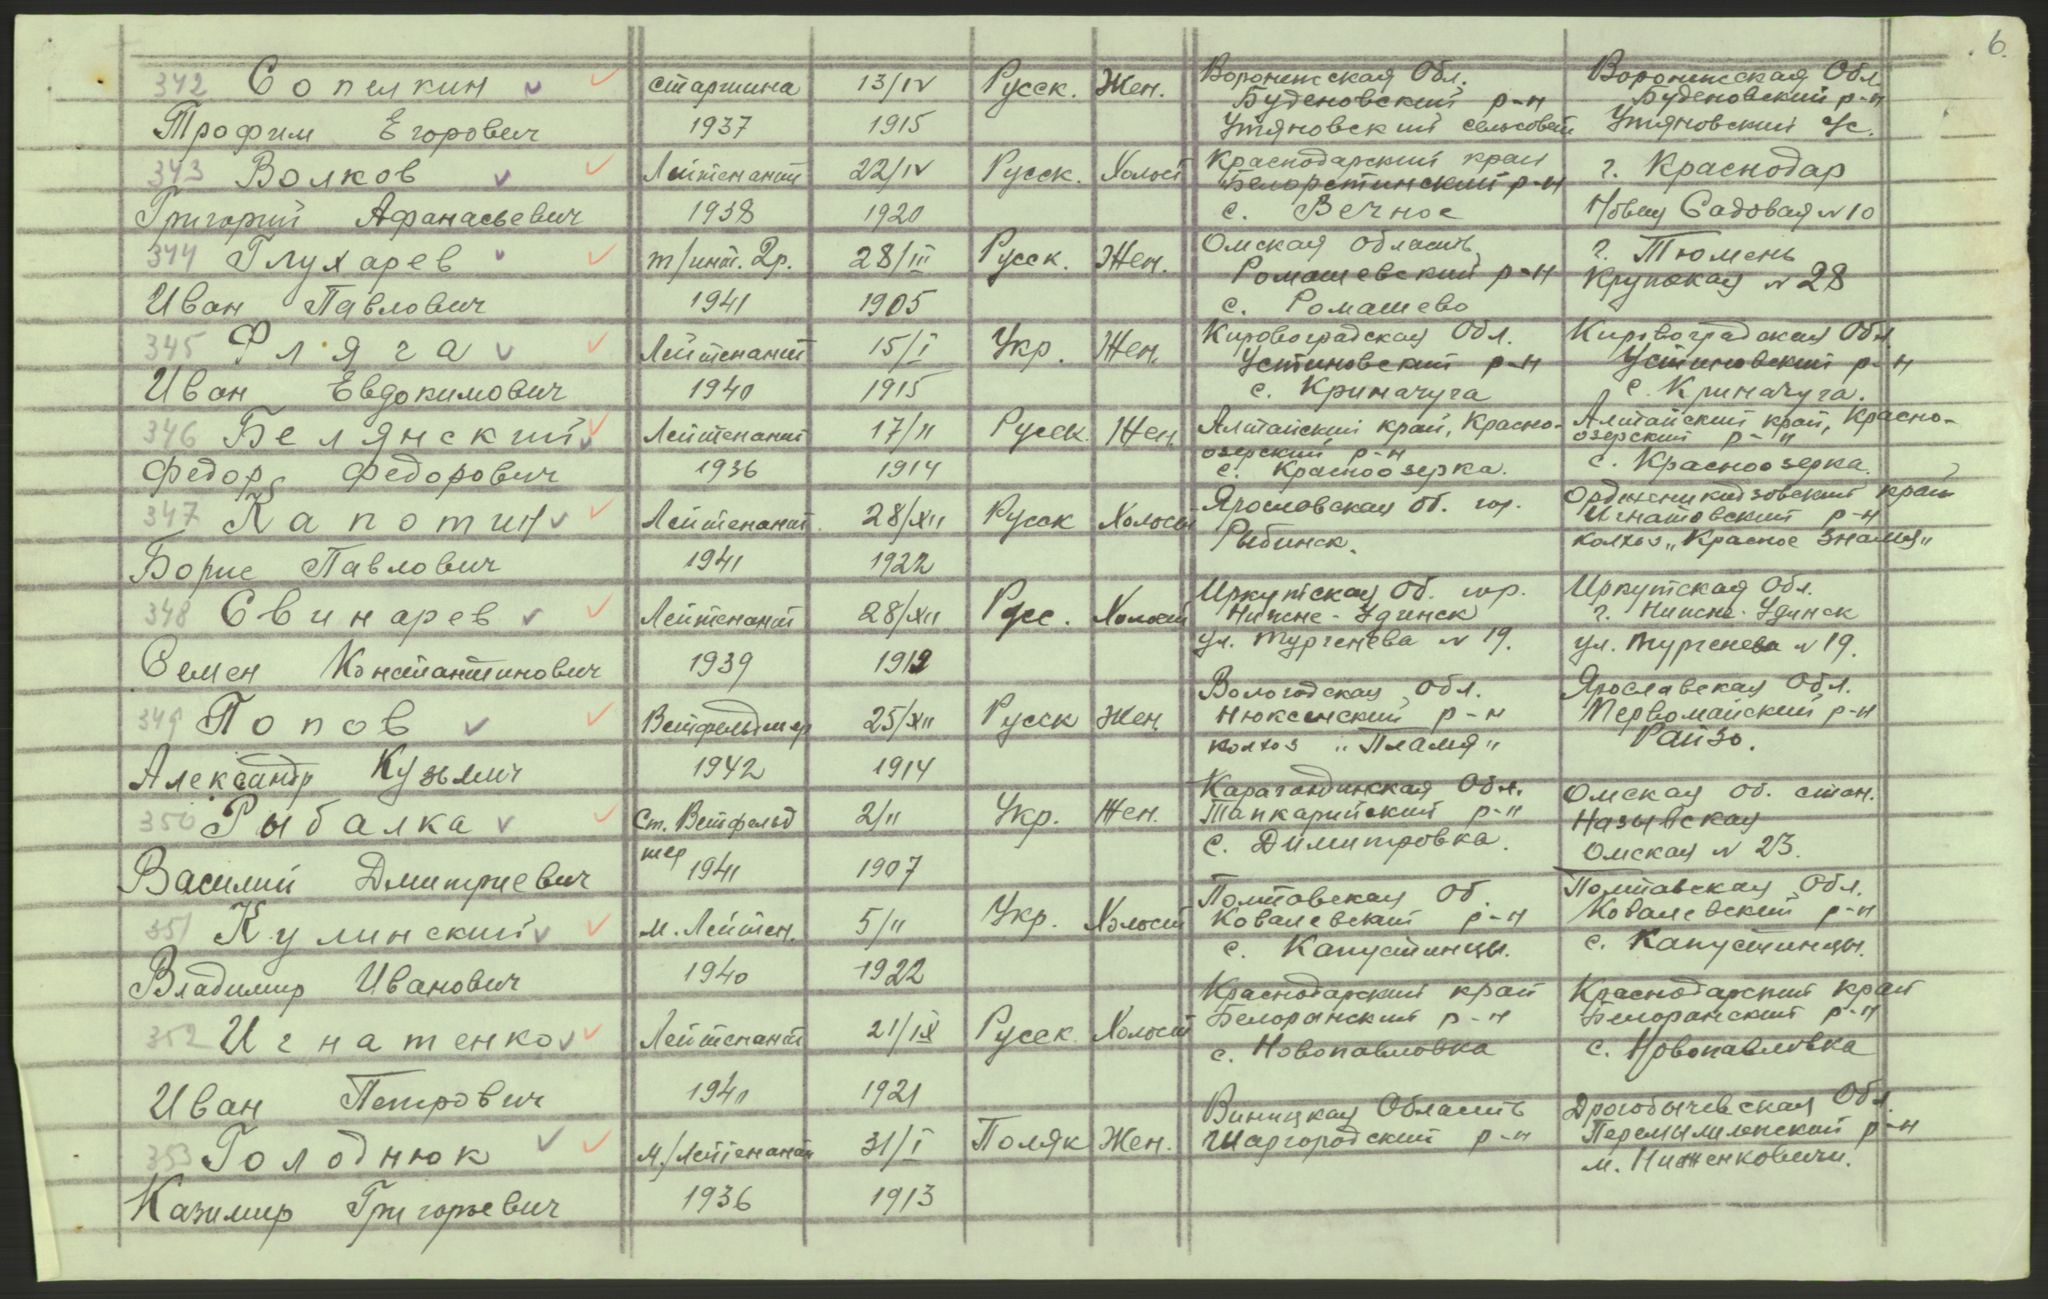 6.
342 Сопелкин старшина 13/IV Русск. Жен. Воронежская Обл. Воронежская Обл
Буденовский р-н Буденовский р-н
Трофим Егорович 1937 1915 Утяновский сельсовет Утяновский с/с.
343 Волков Лейтенант 22/IV Русск. Холост Краснодарский край г. Краснодар
Белоретинский р-н
Григорий Афанасьевич 1938 1920 с. Вечное Садовая N 10
344 Глухарев т/инт. 2р. 28/III Русск. Жен. Омская область г. Тюмень
Ромашевский р-н Крупская N 28
Иван Павлович 1941 1905 с. Ромашево
345 Фляга Лейтенант 15/I Укр. Жен. Кировоградская Обл. Кировоградская Обл
Устиновский р-н Устиновский р-н
Иван Евдокимович 1940 1915 с. Криначуга с. Криначуга.
346 Белянский Лейтенант 17/II Русск. Жен Алтайский край, Красно- Алтайский край, Красно-
озерский р-н озерский р-н
Федор Федорович 1936 1914 с. Красноозерка. с. Красноозерка.
347 Капотин Лейтенант 28/XII Русск Холост Ярославская об. гор. Орджоникидзовский край
Игнатовский р-н
Рыбинск. колхоз „Красное Знамя"
Борис Павлович 1941 1922
348 Свинарев Лейтенант 28/XII Русс. Холост Иркутская Об. гор. Иркутская Обл.
Нижне-Удинск г. Нижне-Удинск
ул. Тургенева N 19. ул. Тургенева N 19.
Семен Константинович 1939 1919
349 Попов Ветфельдшер 25/XII Русск Жен Вологодская Обл. Ярославская Обл.
Нюксенский р-н Первомайский р-н
колхоз „Пламя" Райзо.
Александр Кузьмич 1942 1914
350 Рыбалка Ст. Ветфельд 2/II Укр. Жен. Карагандинская Обл. Омская об. стан.
Тапкарийский р-н Назывская
шер с. Димитровка. Омская N 23.
Василий Дмитриевич 1941 1907
351 Кулинский м. Лейтен. 5/II Укр. Холост Полтавская Об. Полтавская Обл.
Ковалевский р-н Ковалевский р-н
с. Капустинцы. с. Капустинцы.
Владимир Иванович 1940 1922
352 Игнатенко Лейтенант 21/IX Русск Холост Краснодарский край Краснодарский край
Белоранский р-н Белоранский р-н
с. Новопавловка с. Новопавловка
Иван Петрович 1940 1921
353 Голоднюк М./Лейтенант 31/I Поляк Жен. Виницкая Область Дрогобычевская Обл.
Шаргородский р-н Перемышленский р-н
м. Ниженковичи.
Казимир Григорьевич 1936 1913